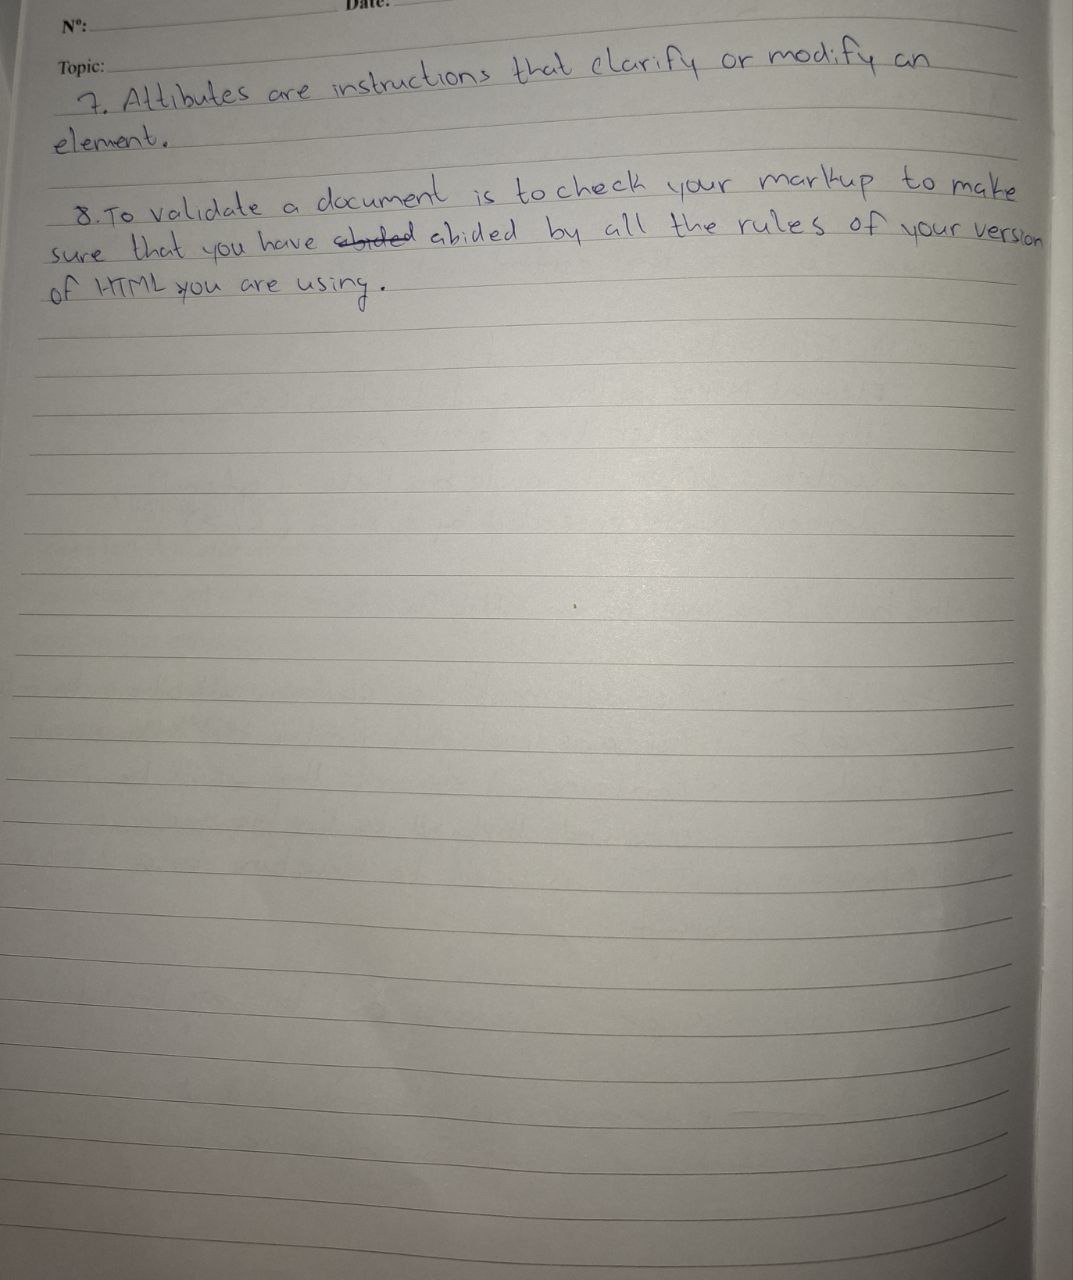 Date:
Nº:
Topic:
7. Attibutes are instructions that clarify or modify an
element.
8. To validate a document is to check your markup to make
sure that you have abided abided by all the rules of your version
of HTML you are using.